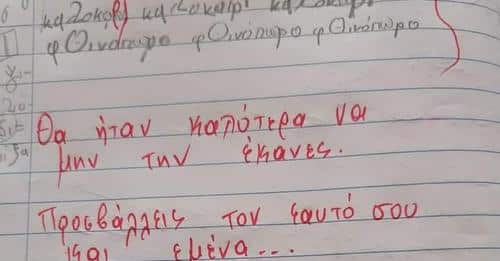 καλοκαίρι καλοκαίρι καλοκαίρι
φθινόπωρο φθινόπωρο φθινόπωρο
Θα ήταν καλύτερα να
μην την έκανες.
Προσβάλλεις τον εαυτό σου
και εμένα...